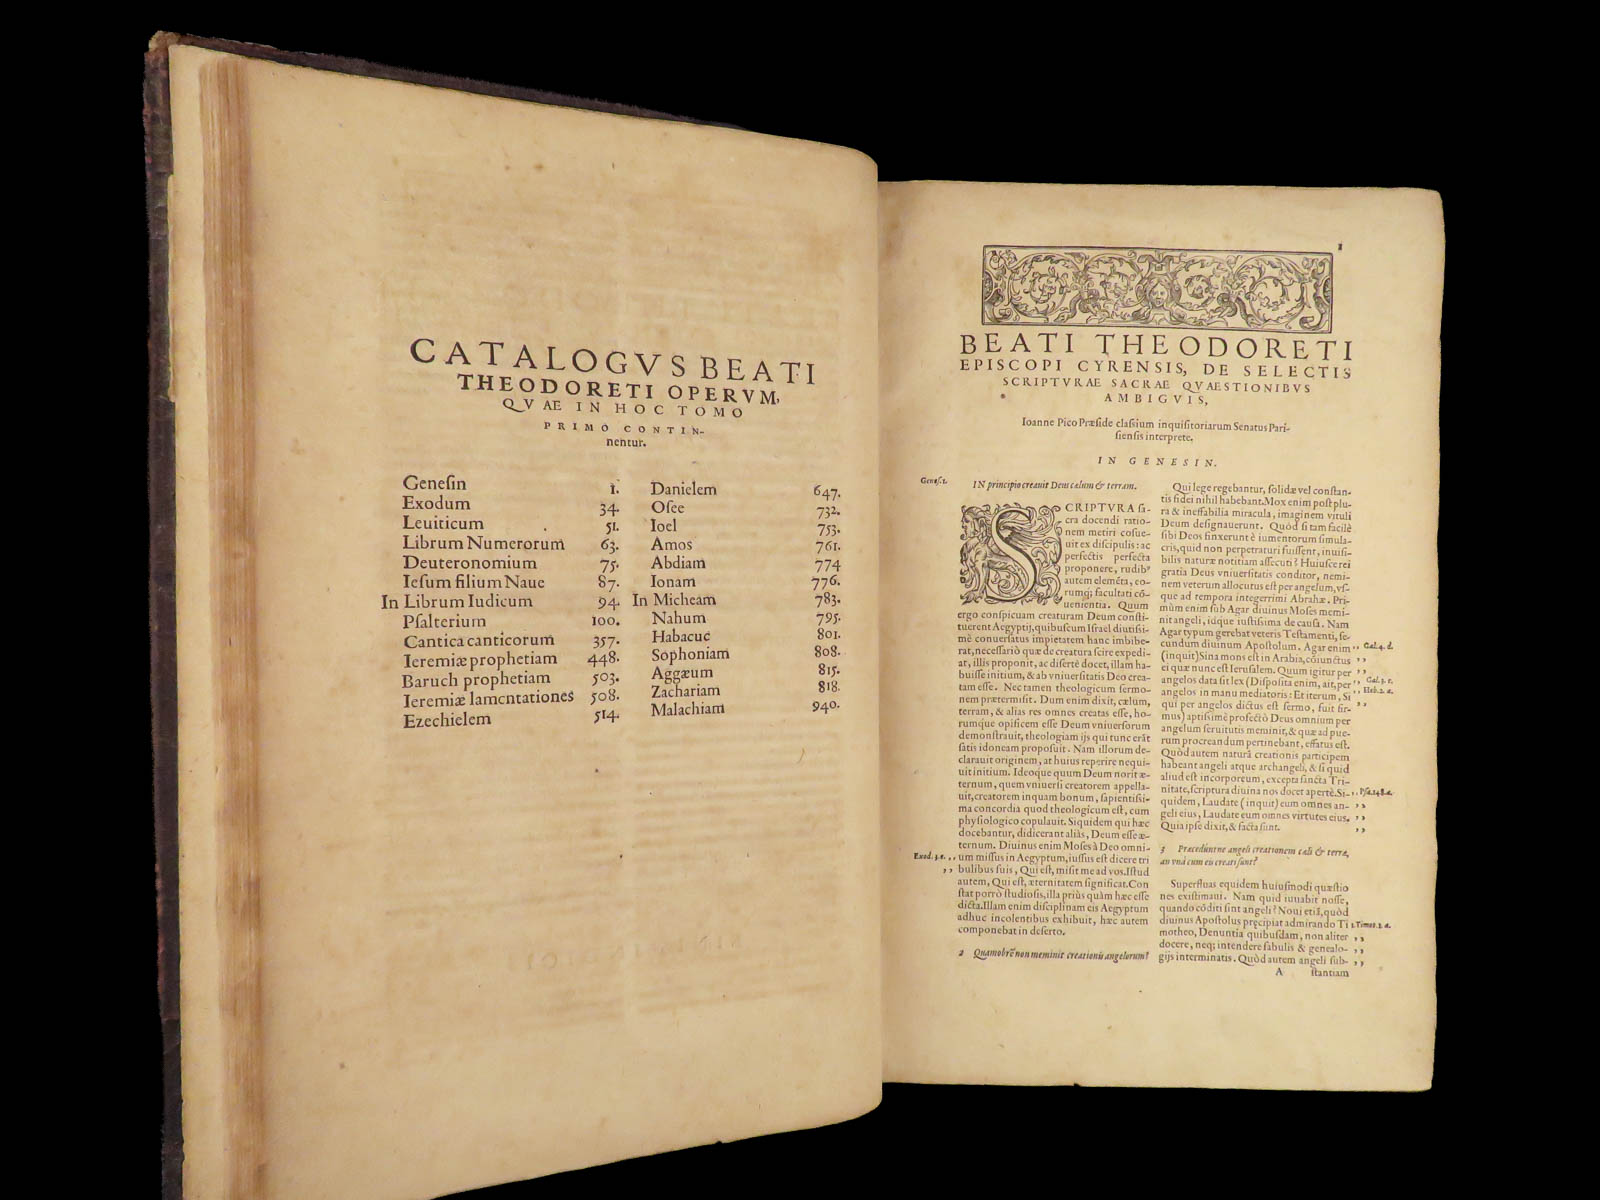 CATALOGVS BEATI
THEODORETI OPERVM,
QVAE IN HOC TOMO
PRIMO CONTIN-
nentur.
Genesin 1.
Exodum 34.
Leuiticum 51.
Librum Numerorum 63.
Deuteronomium 75.
Iesum filium Naue 87.
In Librum Iudicum 94.
Psalterium 100.
Cantica canticorum 357.
Ieremiæ prophetiam 448.
Baruch prophetiam 503.
Ieremiæ lamentationes 508.
Ezechielem 514.
Danielem 647.
Osee 732.
Ioel 753.
Amos 761.
Abdiam 774
Ionam 776.
In Micheam 783.
Nahum 795.
Habacuc 801.
Sophoniam 808.
Aggæum 815.
Zachariam 818.
Malachiam 940.
1
BEATI THEODORETI
EPISCOPI CYRENSIS, DE SELECTIS
SCRIPTVRAE SACRAE QVAESTIONIBVS
AMBIGVIS,
Ioanne Pico Præside classium inquisitoriarum Senatus Pari-
siensis interprete.
IN GENESIN.
Genes. 1.
IN principio creauit Deus cælum & terram.
SCRIPTVRA sa-
cra docendi ratio-
nem metiri consue-
uit ex discipulis: ac
perfectis perfecta
proponere, rudibꝰ
autem elemẽta, eo-
rumq; facultati cõ-
uenientia. Quum
ergo conspicuam creaturam Deum consti-
tuerent Aegyptij, quibuscum Israel diutissi-
mè conuersatus impietatem hanc imbibe-
rat, necessariò quæ de creatura scire expedi-
at, illis proponit, ac disertè docet, illam ha-
buisse initium, & ab vniuersitatis Deo crea-
tam esse. Nec tamen theologicum sermo-
nem prætermisit. Dum enim dixit, cælum,
terram, & alias res omnes creatas esse, ho-
rumque opificem esse Deum vniuersorum
demonstrauit, theologiam ijs qui tunc erãt
satis idoneam proposuit. Nam illorum de-
clarauit originem, at huius reperire nequi-
uit initium. Ideoque quum Deum norit æ-
ternum, quem vniuersi creatorem appella-
uit, creatorem inquam bonum, sapientissi-
ma concordia quod theologicum est, cum
physiologico copulauit. Siquidem qui hæc
docebantur, didicerant aliàs, Deum esse æ-
ternum. Diuinus enim Moses à Deo omni-
Exod. 3. e. ,, um missus in Aegyptum, iussus est dicere tri
,, bulibus suis, Qui est, misit me ad vos. Istud
autem, Qui est, æternitatem significat. Con
stat porrò studiosis, illa priùs quàm hæc esse
dicta. Illam enim disciplinam eis Aegyptum
adhuc incolentibus exhibuit, hæc autem
componebat in deserto.
2 Quamobrẽ non meminit creationis angelorum?
Qui lege regebantur, solidæ vel constan-
tis fidei nihil habebant. Mox enim post plu-
ra & ineffabilia miracula, imaginem vituli
Deum designauerunt. Quòd si tam facilè
sibi Deos finxerunt è iumentorum simula-
cris, quid non perpetraturi fuissent, inuisi-
bilis naturæ notitiam assecuti? Huiusce rei
gratia Deus vniuersitatis conditor, nemi-
nem veterum allocutus est per angelum, vs-
que ad tempora integerrimi Abrahæ. Pri-
mùm enim sub Agar diuinus Moses memi-
nit angeli, idque iustissima de causa. Nam
Agar typum gerebat veteris Testamenti, se-
cundum diuinum Apostolum. Agar enim ,, Gal. 4. d.
(inquit) Sina mons est in Arabia, cõiunctus ,,
ei quæ nunc est Ierusalem. Quum igitur per ,,
angelos data sit lex (Disposita enim, ait, per ,, Gal. 3. c.
angelos in manu mediatoris: Et iterum, Si ,, Heb. 2. a.
qui per angelos dictus est sermo, fuit fir- ,,
mus) aptissimè profectò Deus omnium per
angelum seruitutis meminit, & quæ ad pue-
rum procreandum pertinebant, effatus est.
Quòd autem naturâ creationis participem
habeant angeli atque archangeli, & si quid
aliud est incorporeum, excepta sancta Tri-
nitate, scriptura diuina nos docet apertè. Si- ,, Psa. 148. a.
quidem, Laudate (inquit) eum omnes an- ,,
geli eius, Laudate eum omnes virtutes eius. ,,
Quia ipse dixit, & facta sunt. ,,
3 Præcedúntne angeli creationem cæli & terræ,
an vnà cum eis creati sunt?
Superfluas equidem huiusmodi quæstio
nes existimaui. Nam quid iuuabit nosse,
quando cõditi sint angeli? Noui etiã, quòd
diuinus Apostolus pręcipiat admirando Ti 1. Timot. 1. a.
motheo, Denuntia quibusdam, non aliter ,,
docere, neq; intendere fabulis & genealo- ,,
gijs interminatis. Quòd autem angeli sub- ,,
A stantiam